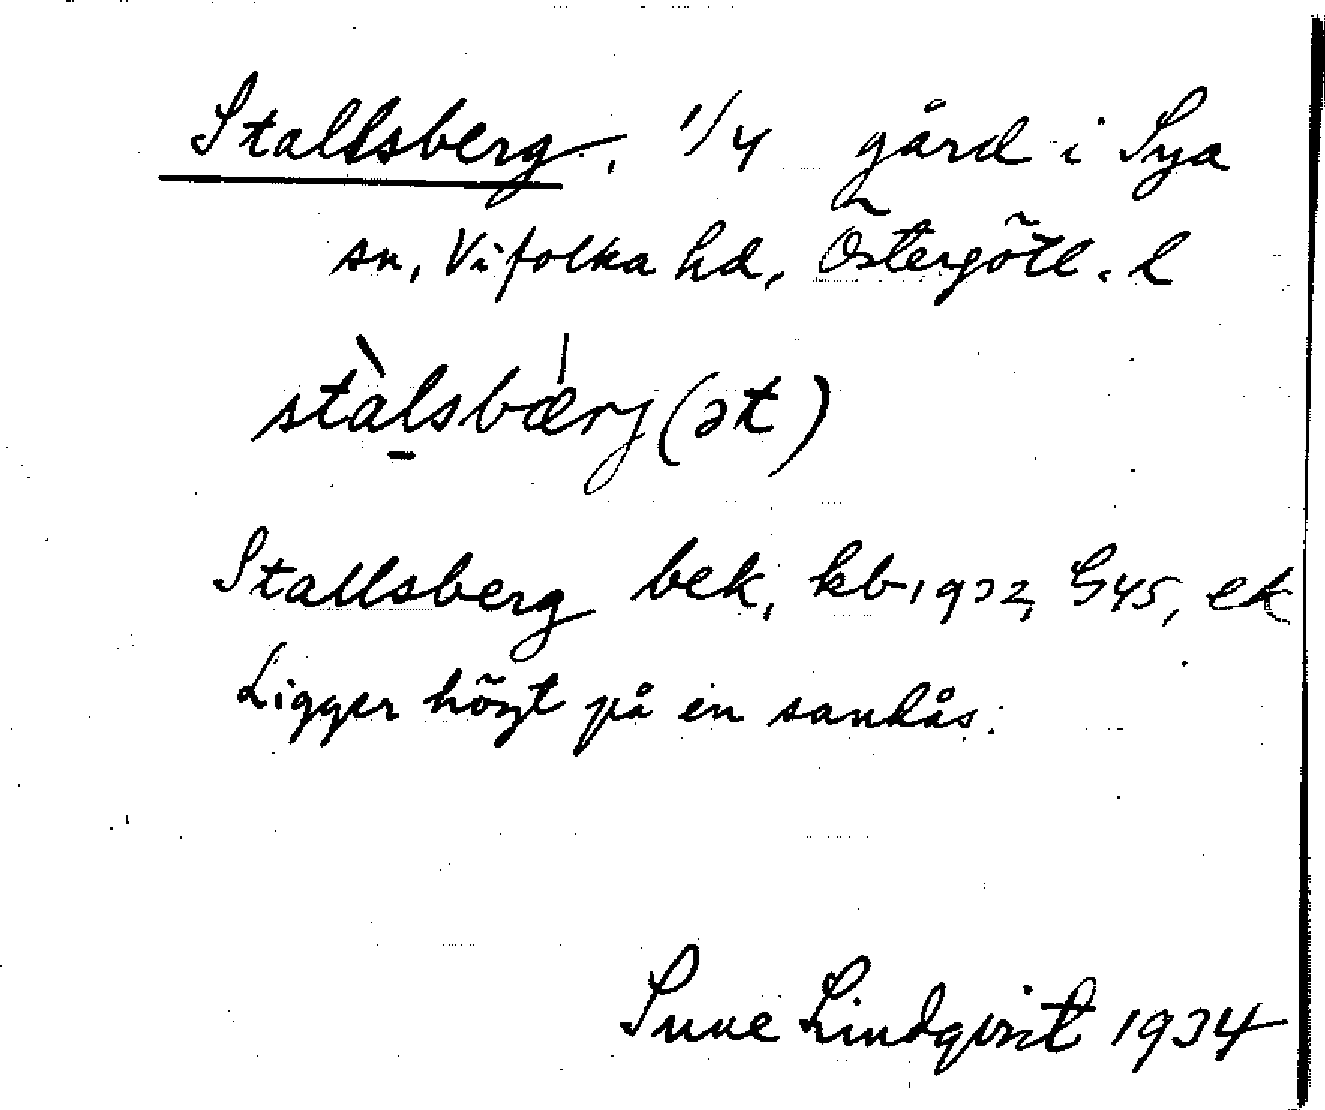 Stallsberg, 1/4 gård i Sya
sn, Vifolka hd, Östergötl. l
stàl̠sbæ̍rj (ət)
Stallsberg bek, kb 1932, G45, ek
Ligger högt på en sandås.
Sune Lindqvist 1934